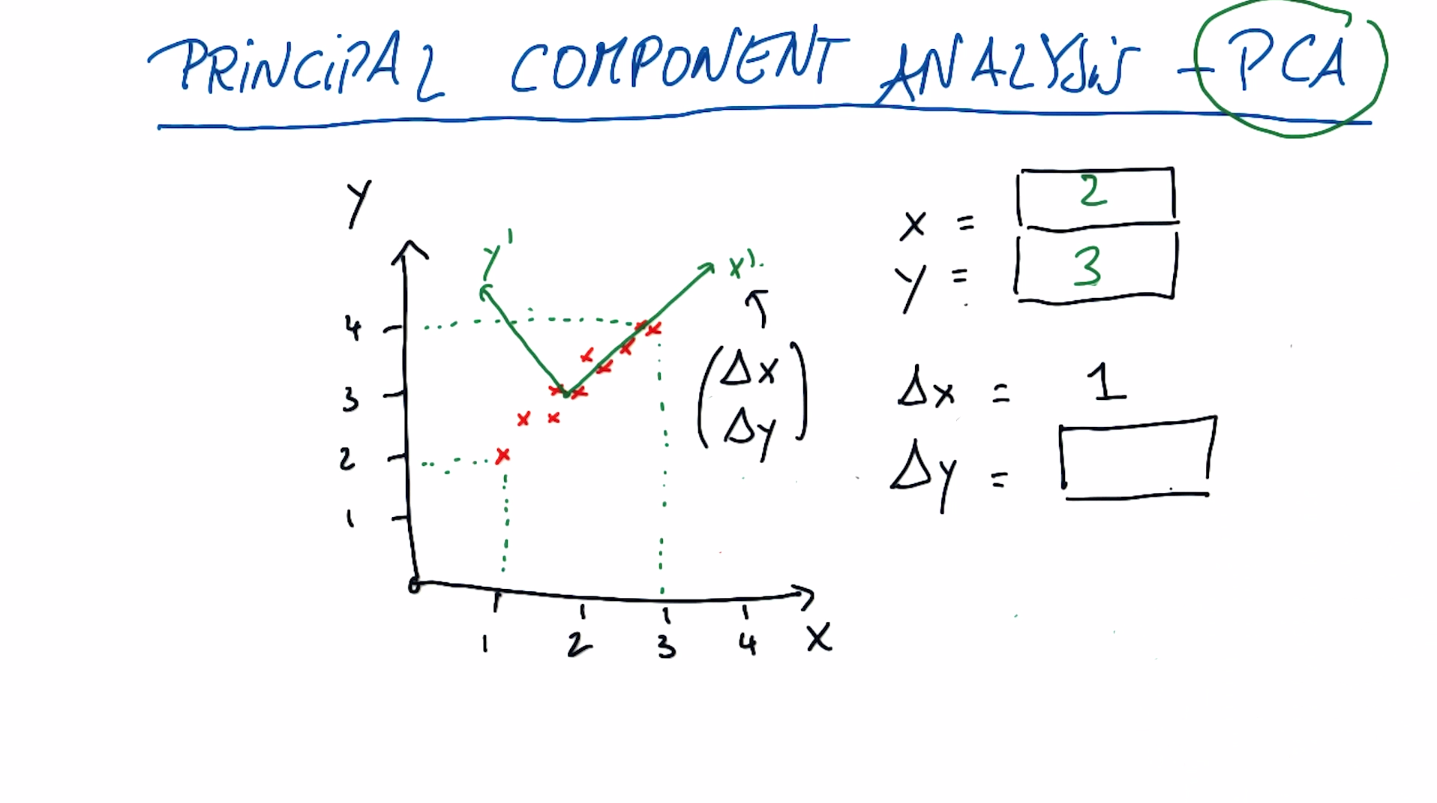 PRINCIPAL COMPONENT ANALYSIS - PCA
Y
y'
x'.
4
3
2
1
1 2 3 4 X
(Δx
Δy)
x = 2
y = 3
Δx = 1
Δy =